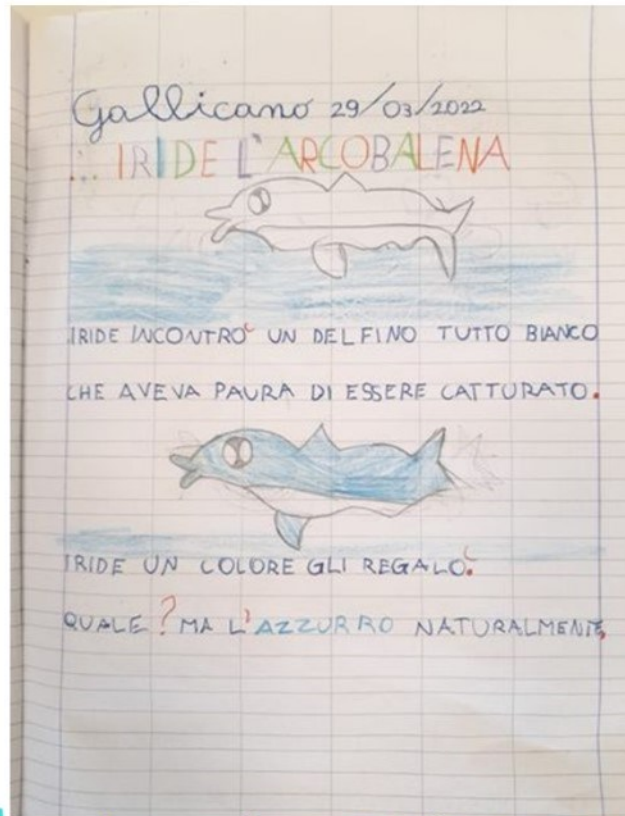 Gallicano 29/03/2022
... IRIDE L'ARCOBALENA
IRIDE INCONTRÒ UN DELFINO TUTTO BIANCO
CHE AVEVA PAURA DI ESSERE CATTURATO.
IRIDE UN COLORE GLI REGALÒ.
QUALE? MA L'AZZURRO NATURALMENTE,